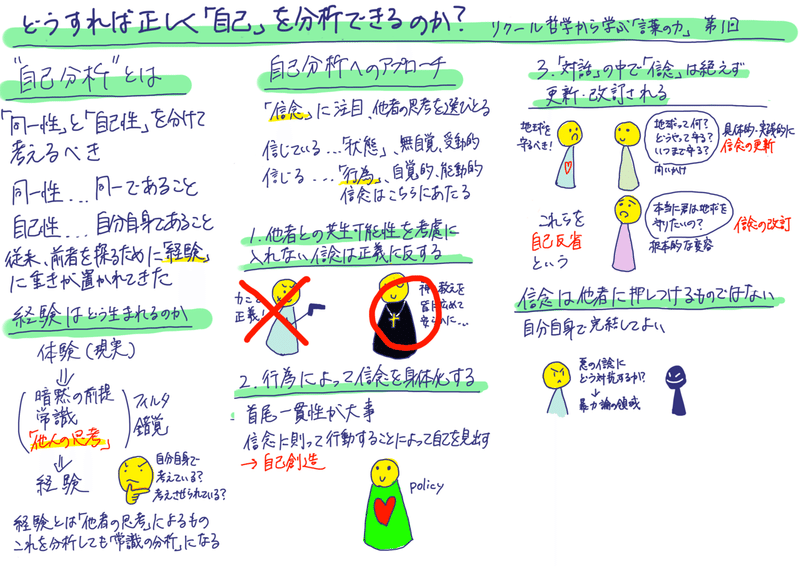 どうすれば正しく「自己」を分析できるのか? リクール哲学から学ぶ「言葉の力」 第1回
"自己分析"とは
「同一性」と「自己性」を分けて
考えるべき
同一性...同一であること
自己性...自分自身であること
従来、前者を探るために「経験」
に重きが置かれてきた
経験はどう生まれるのか
体験(現実)
暗黙の前提
常識
「他人の思考」
フィルタ
錯覚
経験
自分自身で
考えている?
考えさせられている?
経験とは「他者の思考」によるもの
これを分析しても「常識の分析」になる
自己分析へのアプローチ
「信念」に注目、他者の思考を選びとる
信じている...「状態」、無自覚、受動的
信じる...「行為」、自覚的、能動的
信念はこちらにあたる
1. 他者との共生可能性を考慮に
入れない信念は正義に反する
力こそ
正義!
神の教えを
皆に広めて
安らかに...
2. 行為によって信念を身体化する
首尾一貫性が大事
信念に則って行動することによって自己を見出す
→ 自己創造
policy
3. 「対話」の中で「信念」は絶えず
更新・改訂される
地球を
守るべき!
地球って何?
どうやって守る?
いつまで守る?
問いかけ
具体的・実践的に
信念の更新
これらを
自己反省
という
本当に君は地球を
守りたいの?
根本的な変容
信念の改訂
信念は他者に押しつけるものではない
自分自身で完結してよい
悪の信念に
どう対抗するか?
暴力論の領域